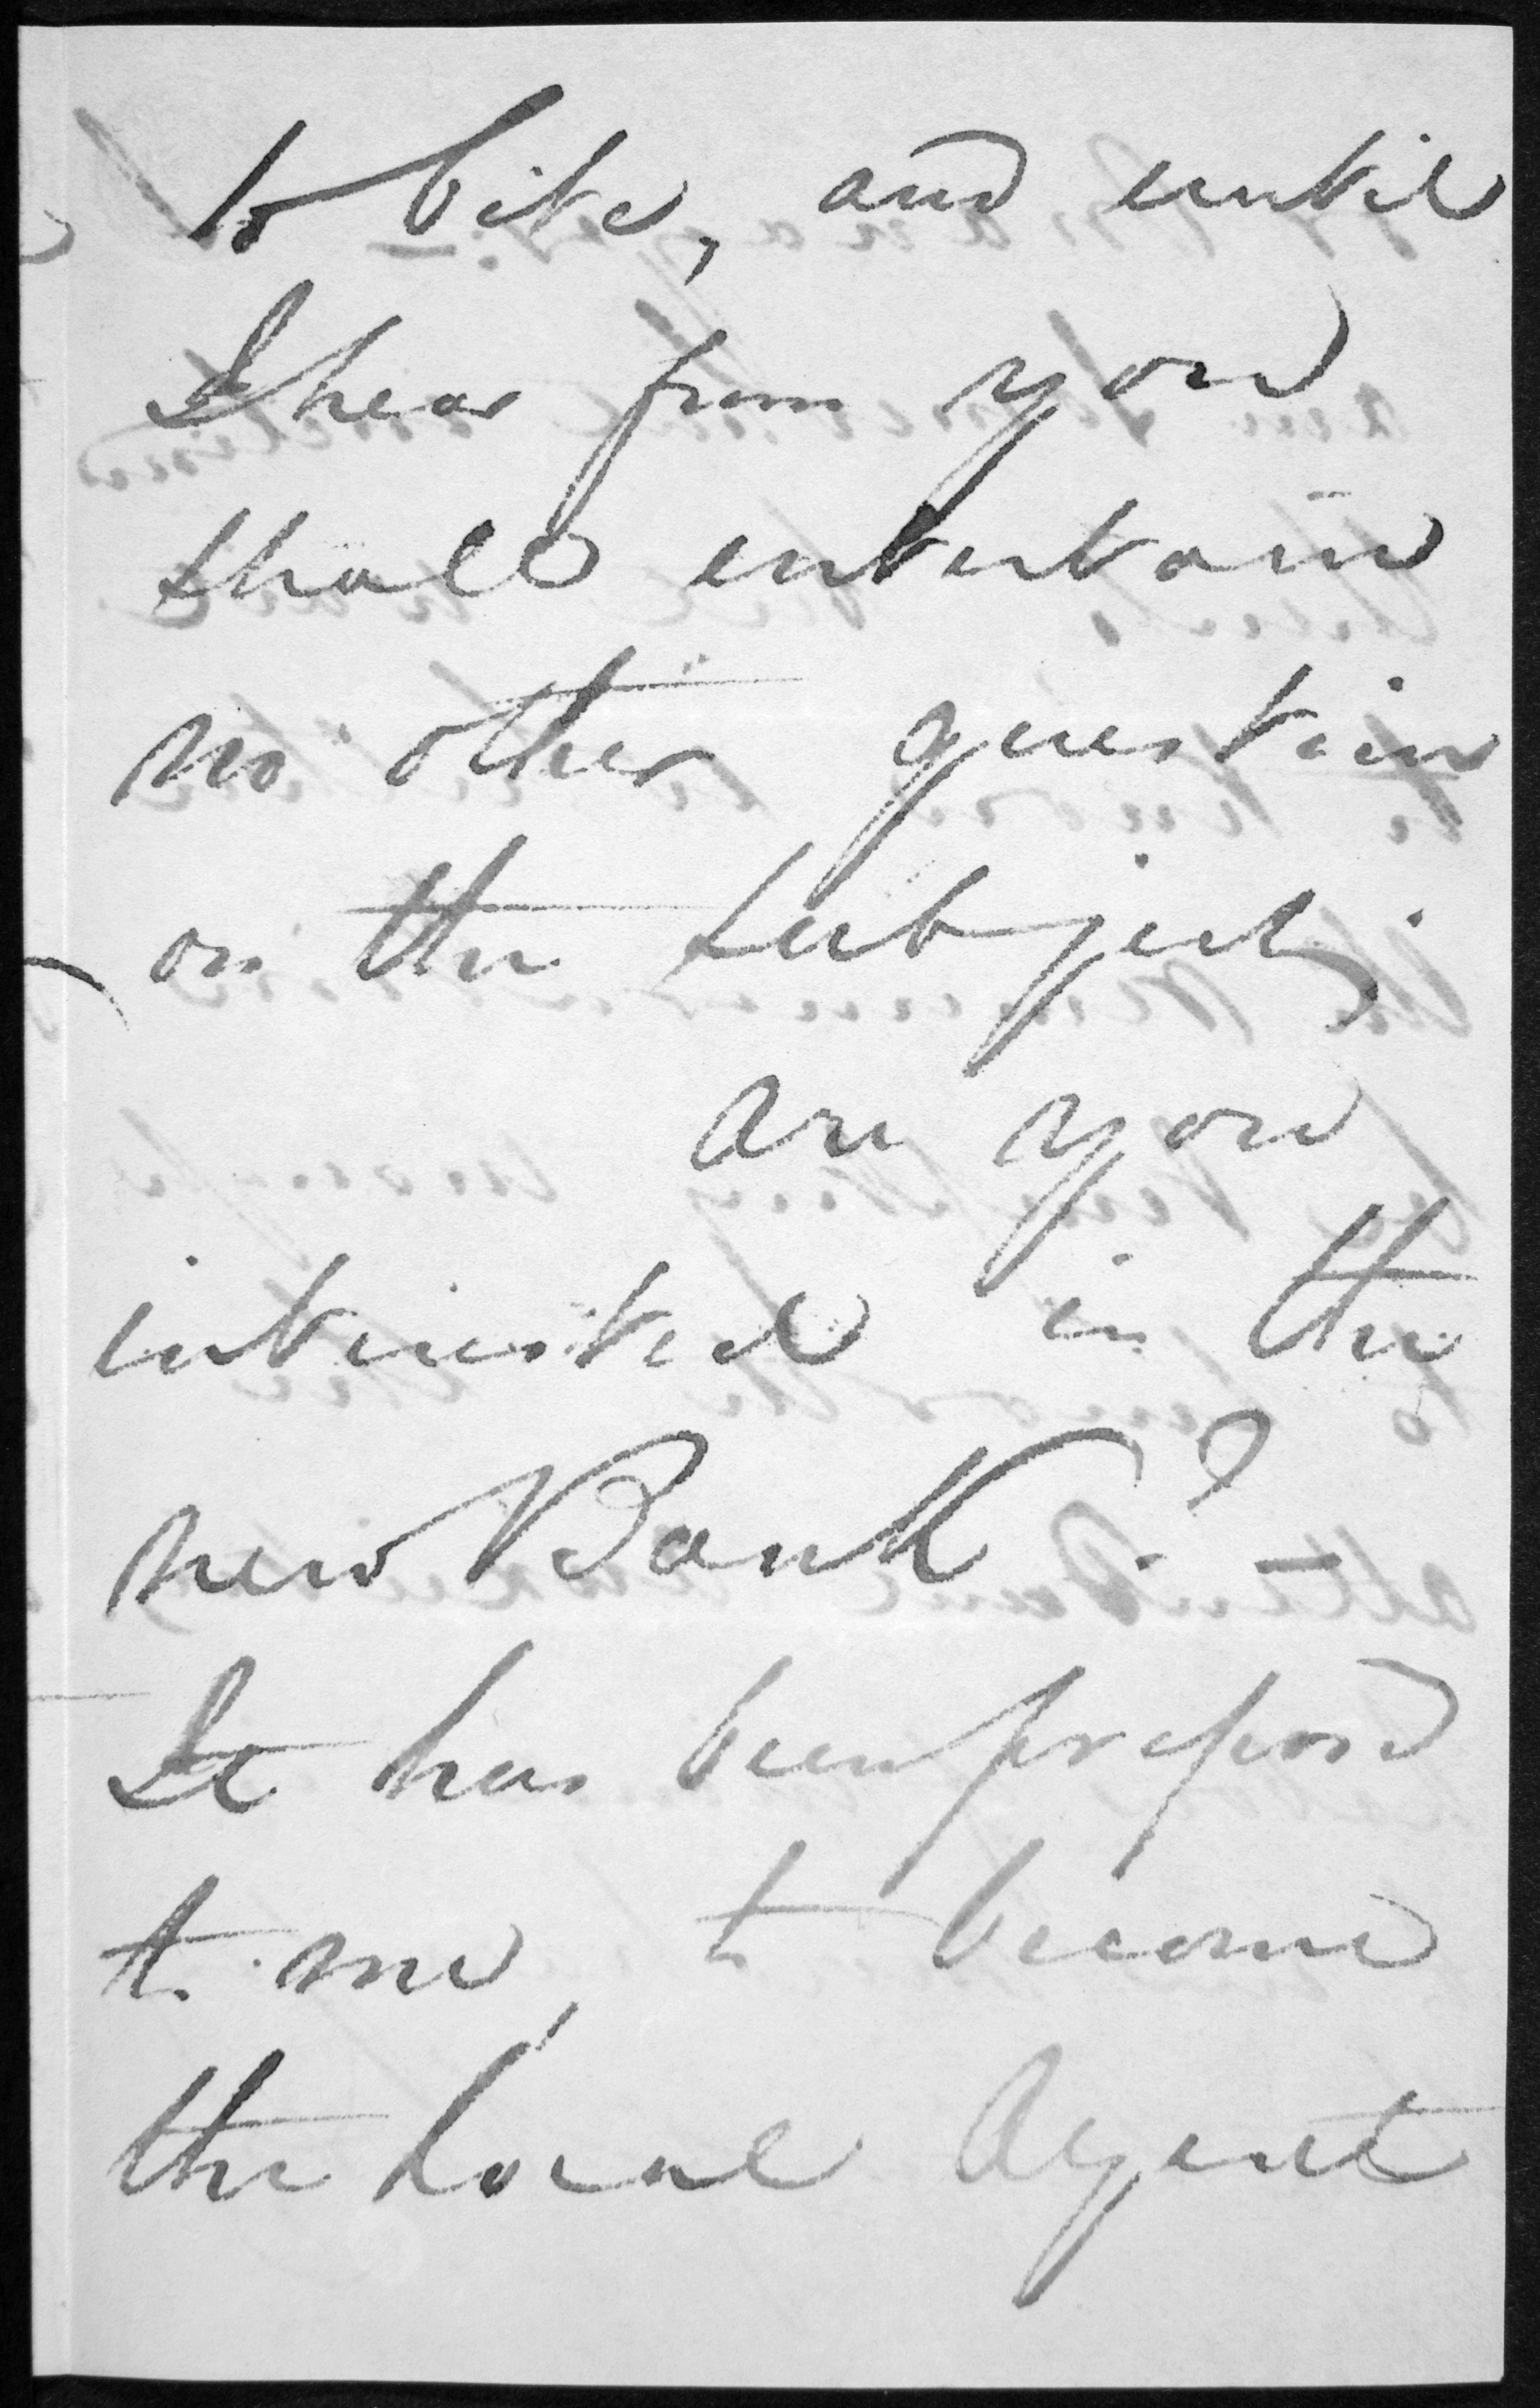 to bite, and until
I hear from you
shall entertain
no other question
on the subject.
Are you
interested in the
new Bank? —
It has been proposed
to me, to become
the Local Agent